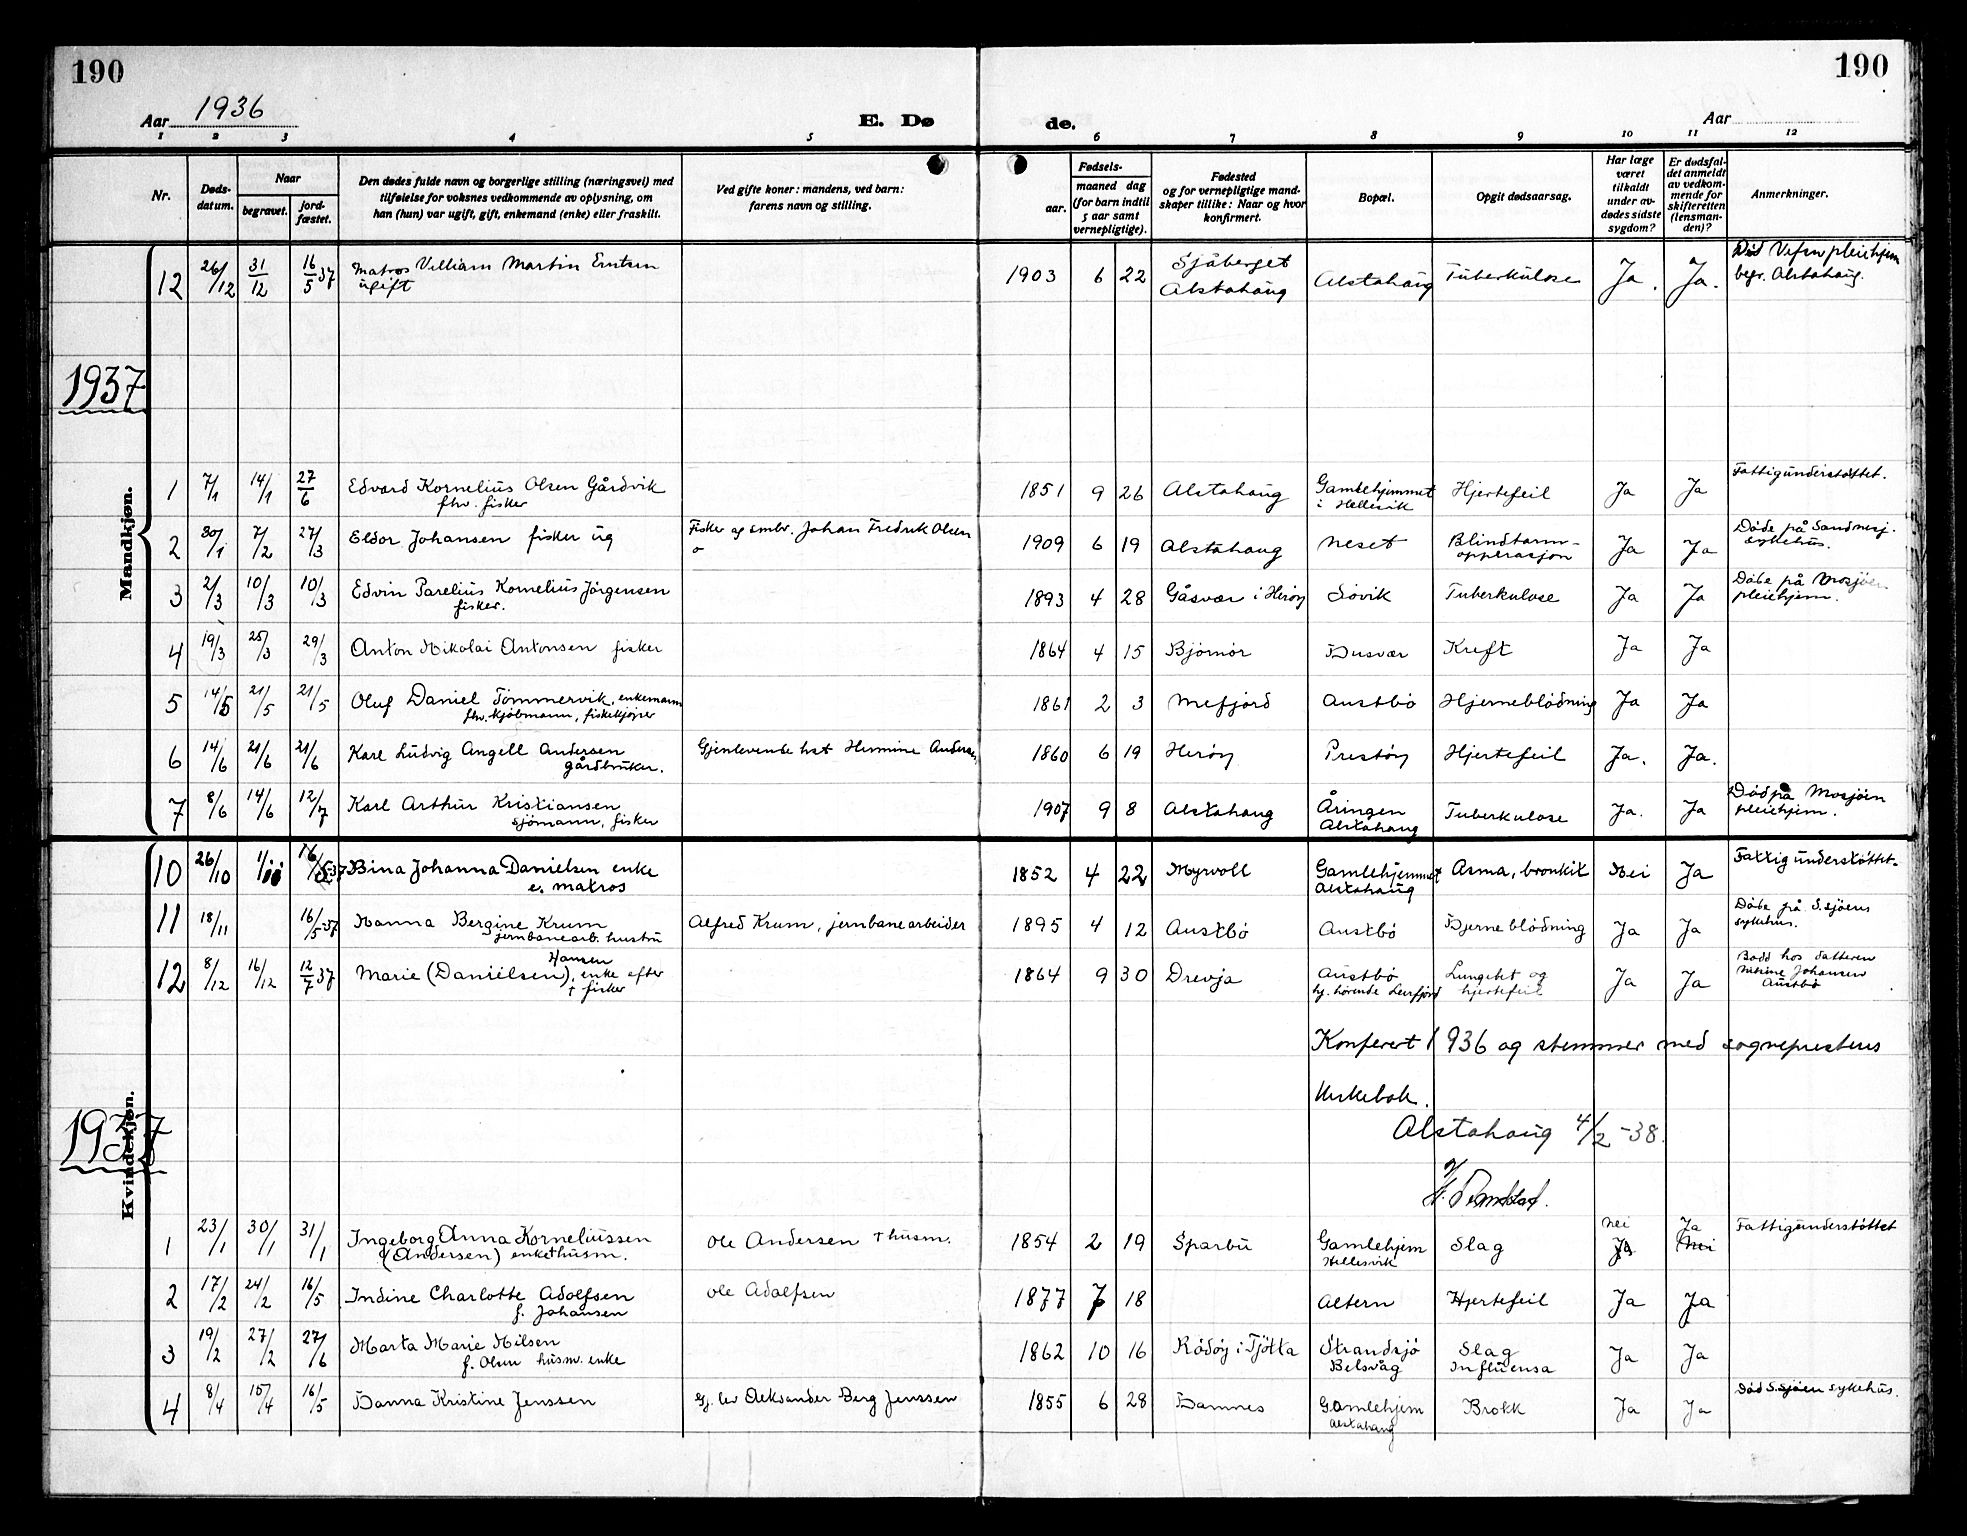 190
190
Aar 1936
E. Dø
de.
Aar
1 2 3 4 5 6 7 8 9 10 11 12
Nr.
Døds-
datum.
Naar
begravet.
jord-
fæstet.
Den dødes fulde navn og borgerlige stilling (næringsvei) med
tilføielse for voksnes vedkommende av oplysning, om
han (hun) var ugift, gift, enkemand (enke) eller fraskilt.
Ved gifte koner: mandens, ved barn:
farens navn og stilling.
Fødsels-
aar.
maaned dag
(for barn indtil
5 aar samt
vernepligtige).
Fødested
og for vernepligtige mand-
skaper tillike: Naar og hvor
konfirmert.
Bopæl.
Opgit dødsaarsag.
Har læge
været
tilkaldt
under av-
dødes sidste
sygdom?
Er dødsfal-
det anmeldt
av vedkom-
mende for
skifteretten
(lensman-
den)?
Anmerkninger.
Mandkjøn.
12 26/12 31/12 16/5 37 Matros Villiam Martin Erntsen
ugift
1903 6 22 Sjåberget
Alstahaug
Alstahaug Tuberkulose Ja. Ja.
Død Vefsn pleiehjem
begr. Alstahaug.
1937
1 7/1 14/1 27/6 Edvard Kornelius Olsen Gårdvik
fhv. fisker
1851 9 26 Alstahaug Gamlehjemmet
i Hellesvik
Hjertefeil Ja Ja Fattigunderstøttet.
2 30/1 7/2 27/3 Eldor Johansen fisker ug
Fisker og smbr. Johan Fredrik Olsen
1909 6 19 Alstahaug Neset Blindtarm-
opperasjon
Ja Ja Døde på Sandnessj.
sykehus.
3 2/3 10/3 10/3 Edvin Parelius Kornelius Jørgensen
fisker.
1893 4 28 Gåsvær i Herøy Søvik Tuberkulose Ja Ja Døde på Mosjøen
pleiehjem.
4 19/3 25/3 29/3 Anton Nikolai Antonsen fisker
1864 4 15 Bjørnør Husvær Kreft Ja Ja
5 14/5 21/5 21/5 Oluf Daniel Tømmervik, enkemann
fhv. kjøbmann, fiskekjøper
1861 2 3 Mefjord Austbø Hjerneblødning Ja Ja
6 14/6 21/6 21/6 Karl Ludvig Angell Andersen
gårdbruker.
Gjenlevende hst Hermine Andersen
1860 6 19 Herøy Prestøy Hjertefeil Ja. Ja.
7 8/6 14/6 12/7 Karl Arthur Kristiansen
sjømann, fisker
1907 9 8 Alstahaug Åringen
Alstahaug
Tuberkulose Ja. Ja Død på Mosjøen
pleiehjem.
Kvindekjøn.
10 26/10 1/11 16/5 37 Bina Johanna Danielsen enke
e. matros
1852 4 22 Myrvoll Gamlehjemmet
Alstahaug
Asma, bronkit Nei Ja Fattigunderstøttet.
11 18/11 16/5 37 Hanna Bergine Krum
jernbanearb. hustru
Alfred Krum, jernbanearbeider
1895 4 12 Austbø Austbø Hjerneblødning Ja Ja Døde på S.sjøens
sykehus.
12 8/12 16/12 12/7 37 Hansen
Marie (Danielsen), enke efter
† fisker
1864 9 30 Drevja Austbø
hj. hørende Leirfjord
Lungebet og
hjertefeil
Ja Ja Bodd hos datteren
Johansen
Austbø
Konferert 1936 og stemmer med sogneprestens
kirkebok.
Alstahaug 4/2 -38.
1937
1 23/1 30/1 31/1 Ingeborg Anna Korneliussen
(Andersen) enke † husm.
Ole Andersen † husm.
1854 2 19 Sparbu Gamlehjem
Hellesvik
Slag nei
Ja
Ja
Nei
Fattigunderstøttet
2 17/2 24/2 16/5 Indine Charlotte Adolfsen
f. Johansen
Ole Adolfsen
1877 7 18 Altern Hjertefeil Ja Ja
3 19/2 27/2 27/6 Marta Marie Nilsen
f. Olsen husm. enke
1862 10 16 Rødøy i Tjøtta Strandsjø
Belsvåg
Slag
Influensa
Ja Ja
4 8/4 15/4 16/5 Hanna Kristine Jenssen
Gj. lev Aleksander Berg Jenssen
1855 6 28 Hamnes Gamlehjem
Alstahaug
Brokk Ja Ja Død S.sjøen sykehus.